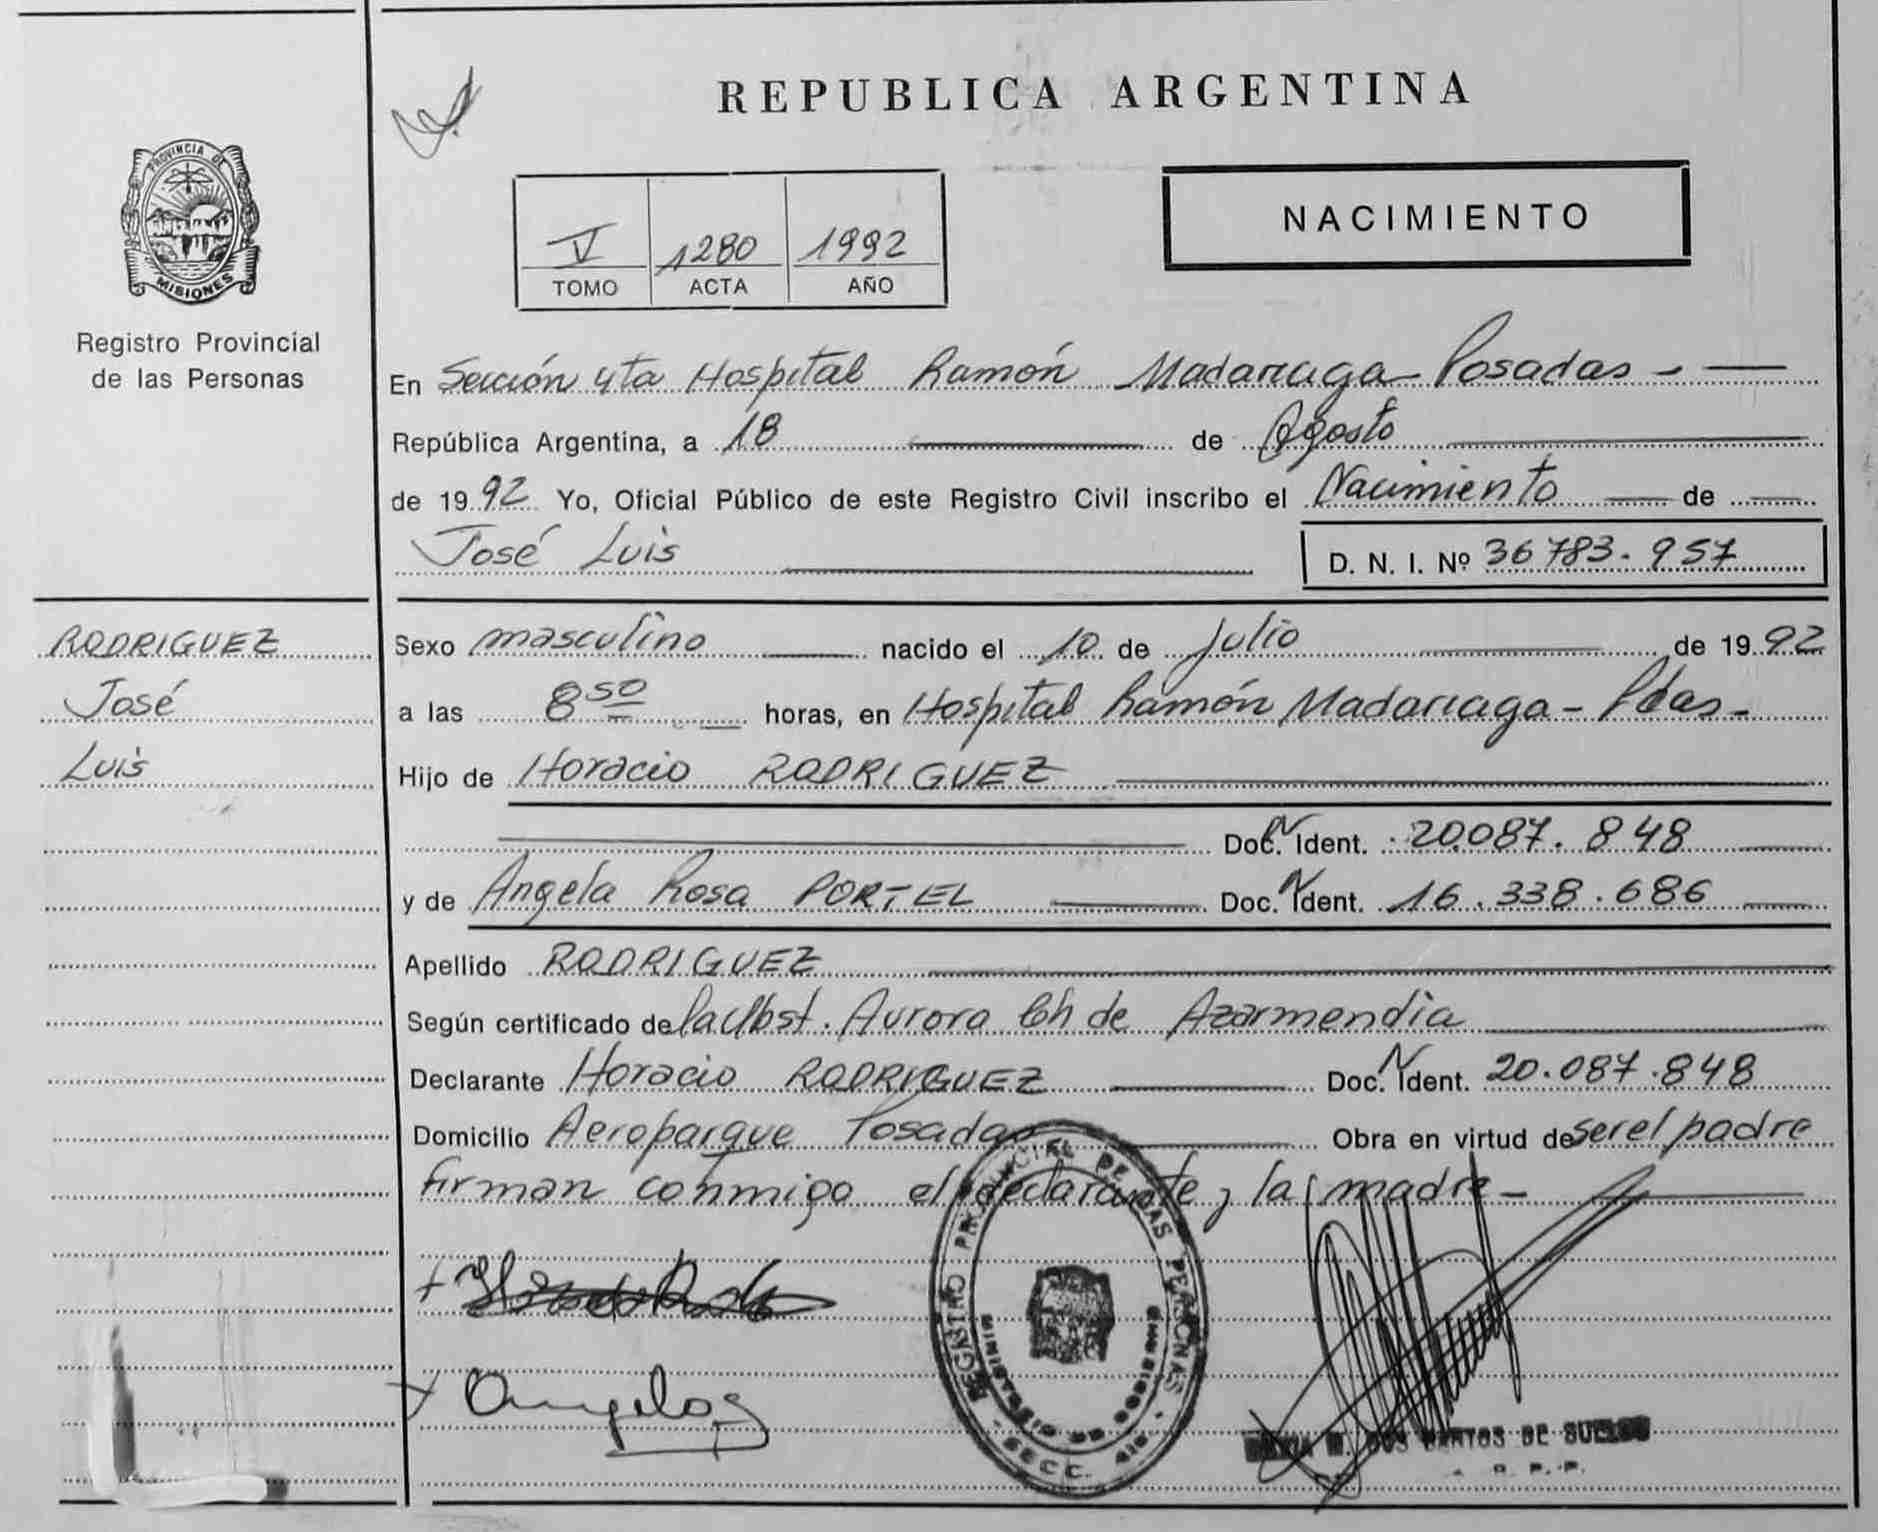 REPUBLICA ARGENTINA
PROVINCIA DE
MISIONES
Registro Provincial
de las Personas
NACIMIENTO
V 1280 1992
TOMO ACTA AÑO
En Sección 4ta Hospital Ramón Madariaga Posadas - —
República Argentina, a 18 de Agosto
de 1992 Yo, Oficial Público de este Registro Civil inscribo el Nacimiento — de —
José Luis
D. N. I. Nº 36783.957
RODRIGUEZ
José
Luis
Sexo masculino nacido el 10 de Julio de 1992
a las 8 50 horas, en Hospital Ramón Madariaga - Pdas -
Hijo de Horacio RODRIGUEZ
Doc. Ident. 20.087.848
y de Angela Rosa PORTEL Doc. Ident. 16.338.686
Apellido RODRIGUEZ
Según certificado de la Obst. Aurora Ch de Azarmendia
Declarante Horacio RODRIGUEZ Doc. Ident. 20.087.848
Domicilio Aeroparque Posadas Obra en virtud de ser el padre
firman conmigo el declarante y la madre -
REGISTRO PROVINCIAL DE LAS PERSONAS
MINISTERIO DE GOBIERNO
SECC. 4ta
DOS SANTOS DE SUELDO